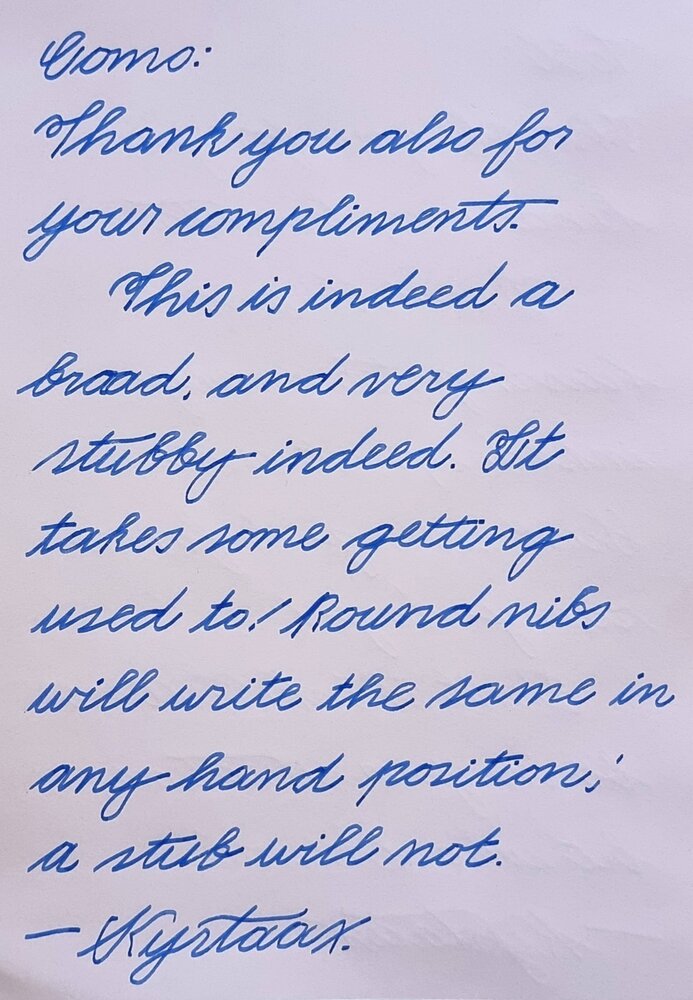 Como:
Thank you also for
your compliments.
This is indeed a
broad, and very
stubby indeed. It
takes some getting
used to! Round nibs
will write the same in
any hand position;
a stub will not.
— Kyrtaax.